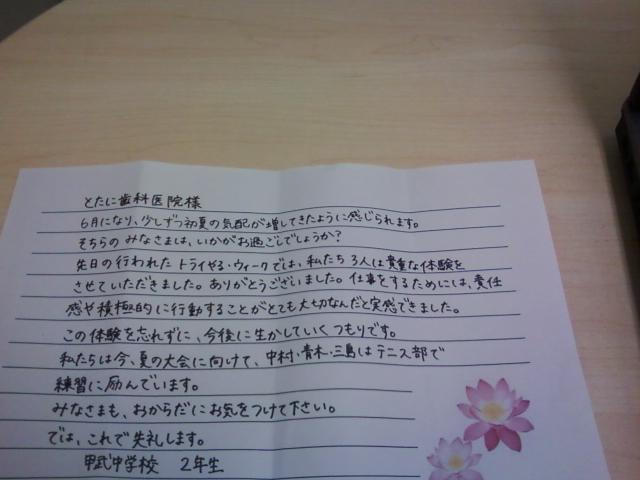 とたに歯科医院様
6月になり、少しずつ初夏の気配が増してきたように感じられます。
そちらのみなさまは、いかがお過ごしでしょうか?
先日の行われたトライやる・ウィークでは、私たち3人は貴重な体験を
させていただきました。ありがとうございました。仕事をするためには、責任
感や積極的に行動することがとても大切なんだと実感できました。
この体験を忘れずに、今後に生かしていくつもりです。
私たちは今、夏の大会に向けて、中村・青木・三島はテニス部で
練習に励んでいます。
みなさまも、おからだにお気をつけて下さい。
では、これで失礼します。
甲武中学校 2年生